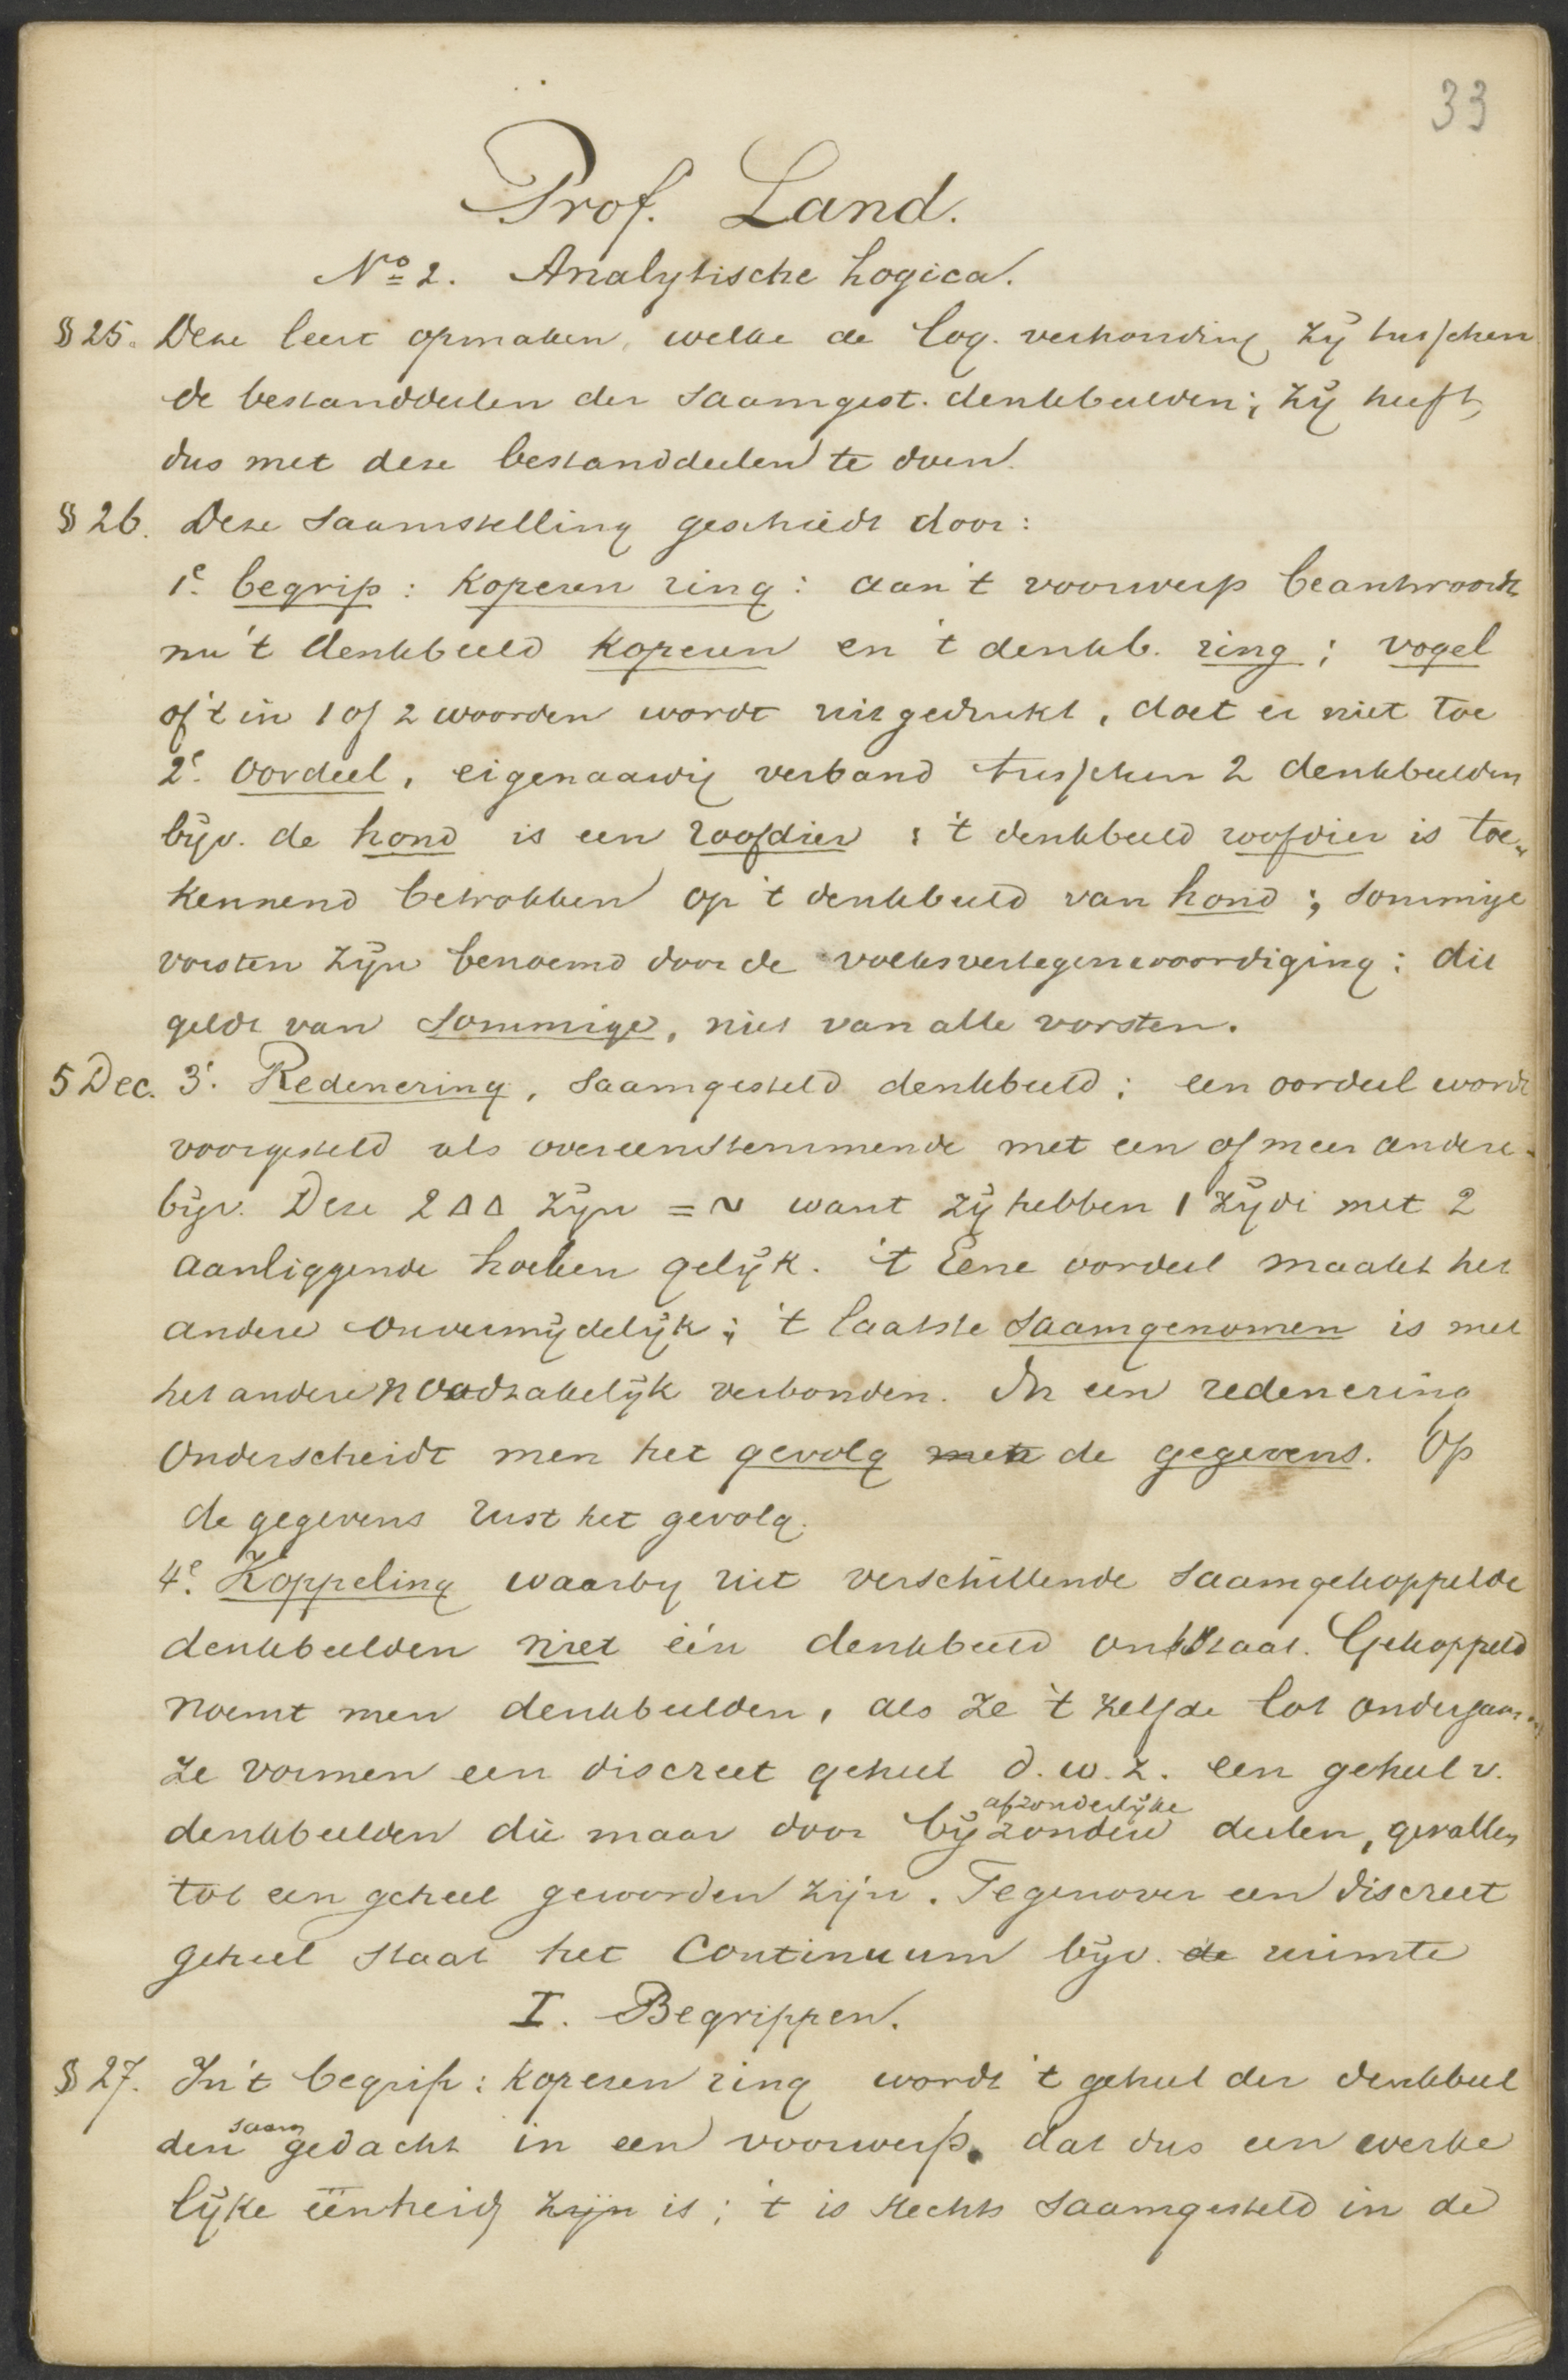 33
Prof. Land.
No 2. Analytische Logica.
§ 25. Deze leert opmaken, welke de log. verhouding zij tusschen
de bestanddeelen der saamgest. denkbeelden; zij heeft
dus met deze bestanddeelen te doen.
§ 26. Deze saamstelling geschiedt door:
1e. begrip: koperen ring: aan 't voorwerp beantwoordt
nu 't denkbeeld koperen en 't denkb. ring; vogel
of 't in 1 of 2 woorden wordt uitgedrukt, doet er niet toe
2e. Oordeel, eigenaardig verband tusschen 2 denkbeelden
bijv. de hond is een roofdier: 't denkbeeld roofdier is toe-
kennend betrokken op 't denkbeeld van hond; sommige
vorsten zijn benoemd door de volksvertegenwoordiging: dit
geldt van sommige, niet van alle vorsten.
5 Dec. 3e. Redenering, saamgesteld denkbeeld: een oordeel wordt
voorgesteld als overeenstemmende met een of meer andere.
bijv. Deze 2 ΔΔ zijn = ~ want zij hebben 1 zijde met 2
aanliggende hoeken gelijk. 't Eene oordeel maakt het
andere onvermijdelijk; 't laatste saamgenomen is met
het andere noodzakelijk verbonden. In een redenering
onderscheidt men het gevolg de gegevens. Op
de gegevens rust het gevolg.
4e. Koppeling waarby uit verschillende saamgekoppelde
denkbeelden niet één denkbeeld ontstaat. Gekoppeld
noemt men denkbeelden, als ze 't zelfde lot ondergaan.
ze vormen een discreet geheel d.w.z. een geheel v.
afzonderlijke
denkbeelden die maar door bijzondere deelen, gevallen
tot een geheel geworden zijn. Tegenover een discreet
geheel staat het Continuum bijv. de ruimte
I. Begrippen.
§ 27. In 't begrip: koperen ring wordt 't geheel der denkbeel
saam
den gedacht in een voorwerp. dat dus een werke
lijke eenheid zijn is; 't is slechts saamgesteld in de